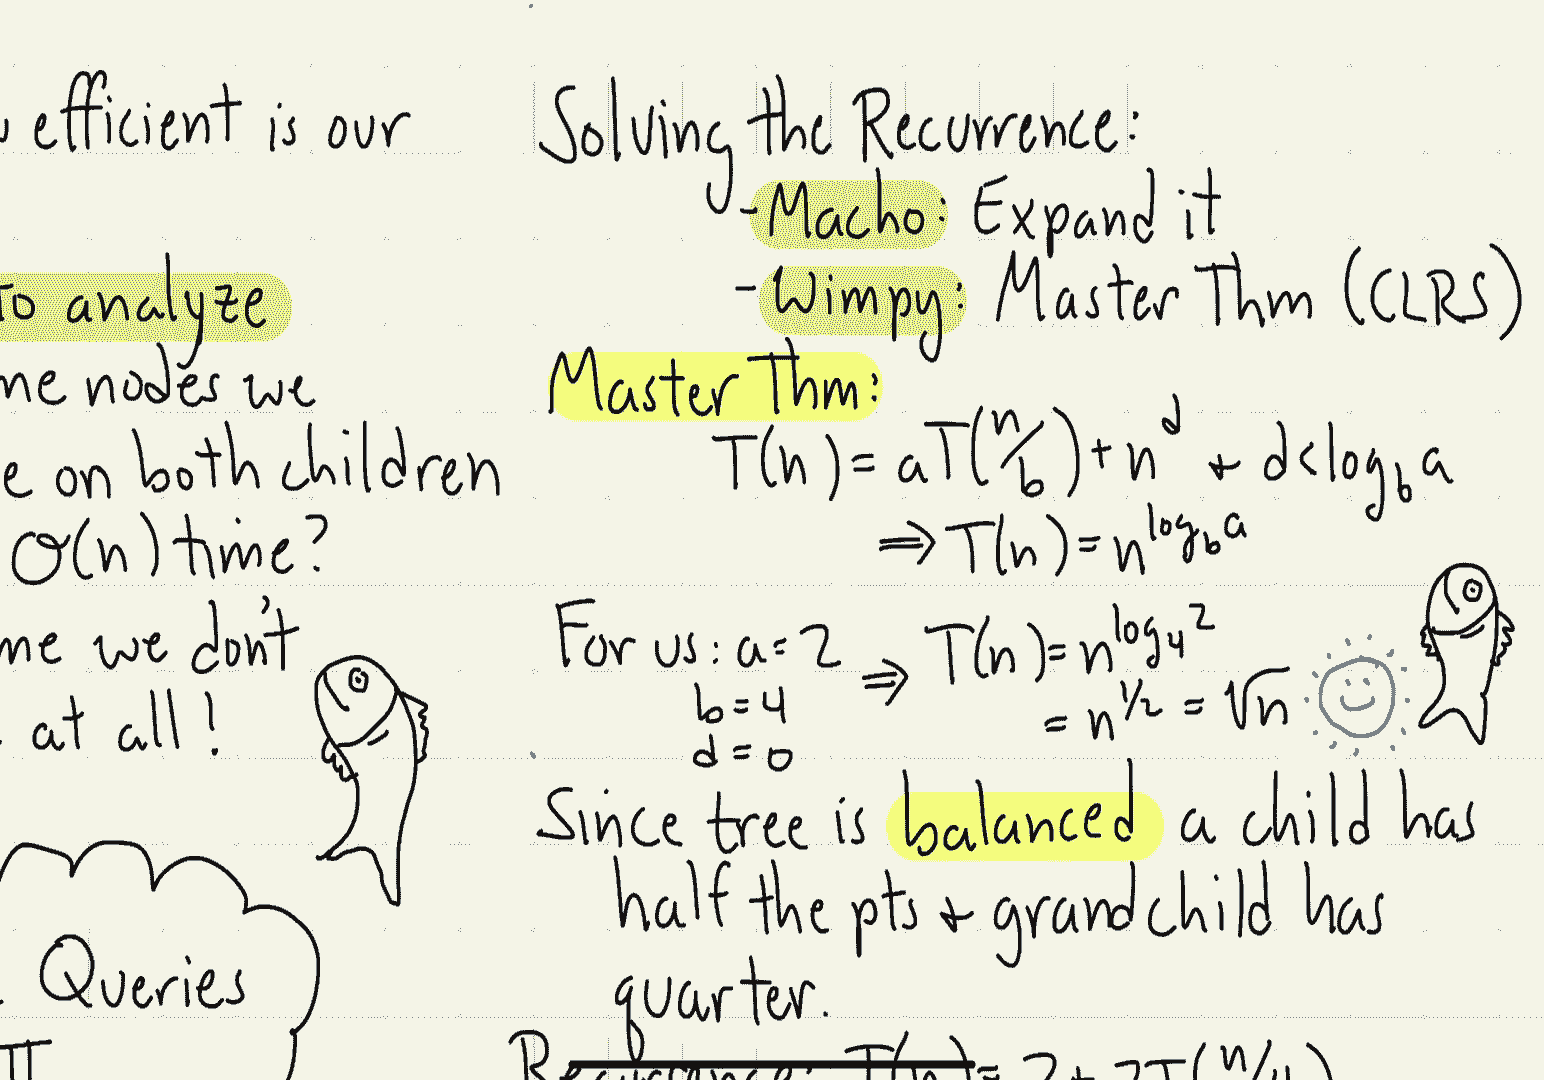 efficient is our
To analyze
me nodes we
e on both children
O(n) time?
me we don't
at all!
Queries
Solving the Recurrence:
- Macho: Expand it
- Wimpy: Master Thm (CLRS)
Master Thm:
T(n) = aT(n/b) + n^d + d < log_b a
⇒ T(n) = n^{log_b a}
For us: a = 2 ⇒ T(n) = n^{log_4 2}
b = 4 = n^{1/2} = √n
d = 0
Since tree is balanced a child has
half the pts + grandchild has
quarter.
Recurrence: T(n) = 2 + 2T(n/4)